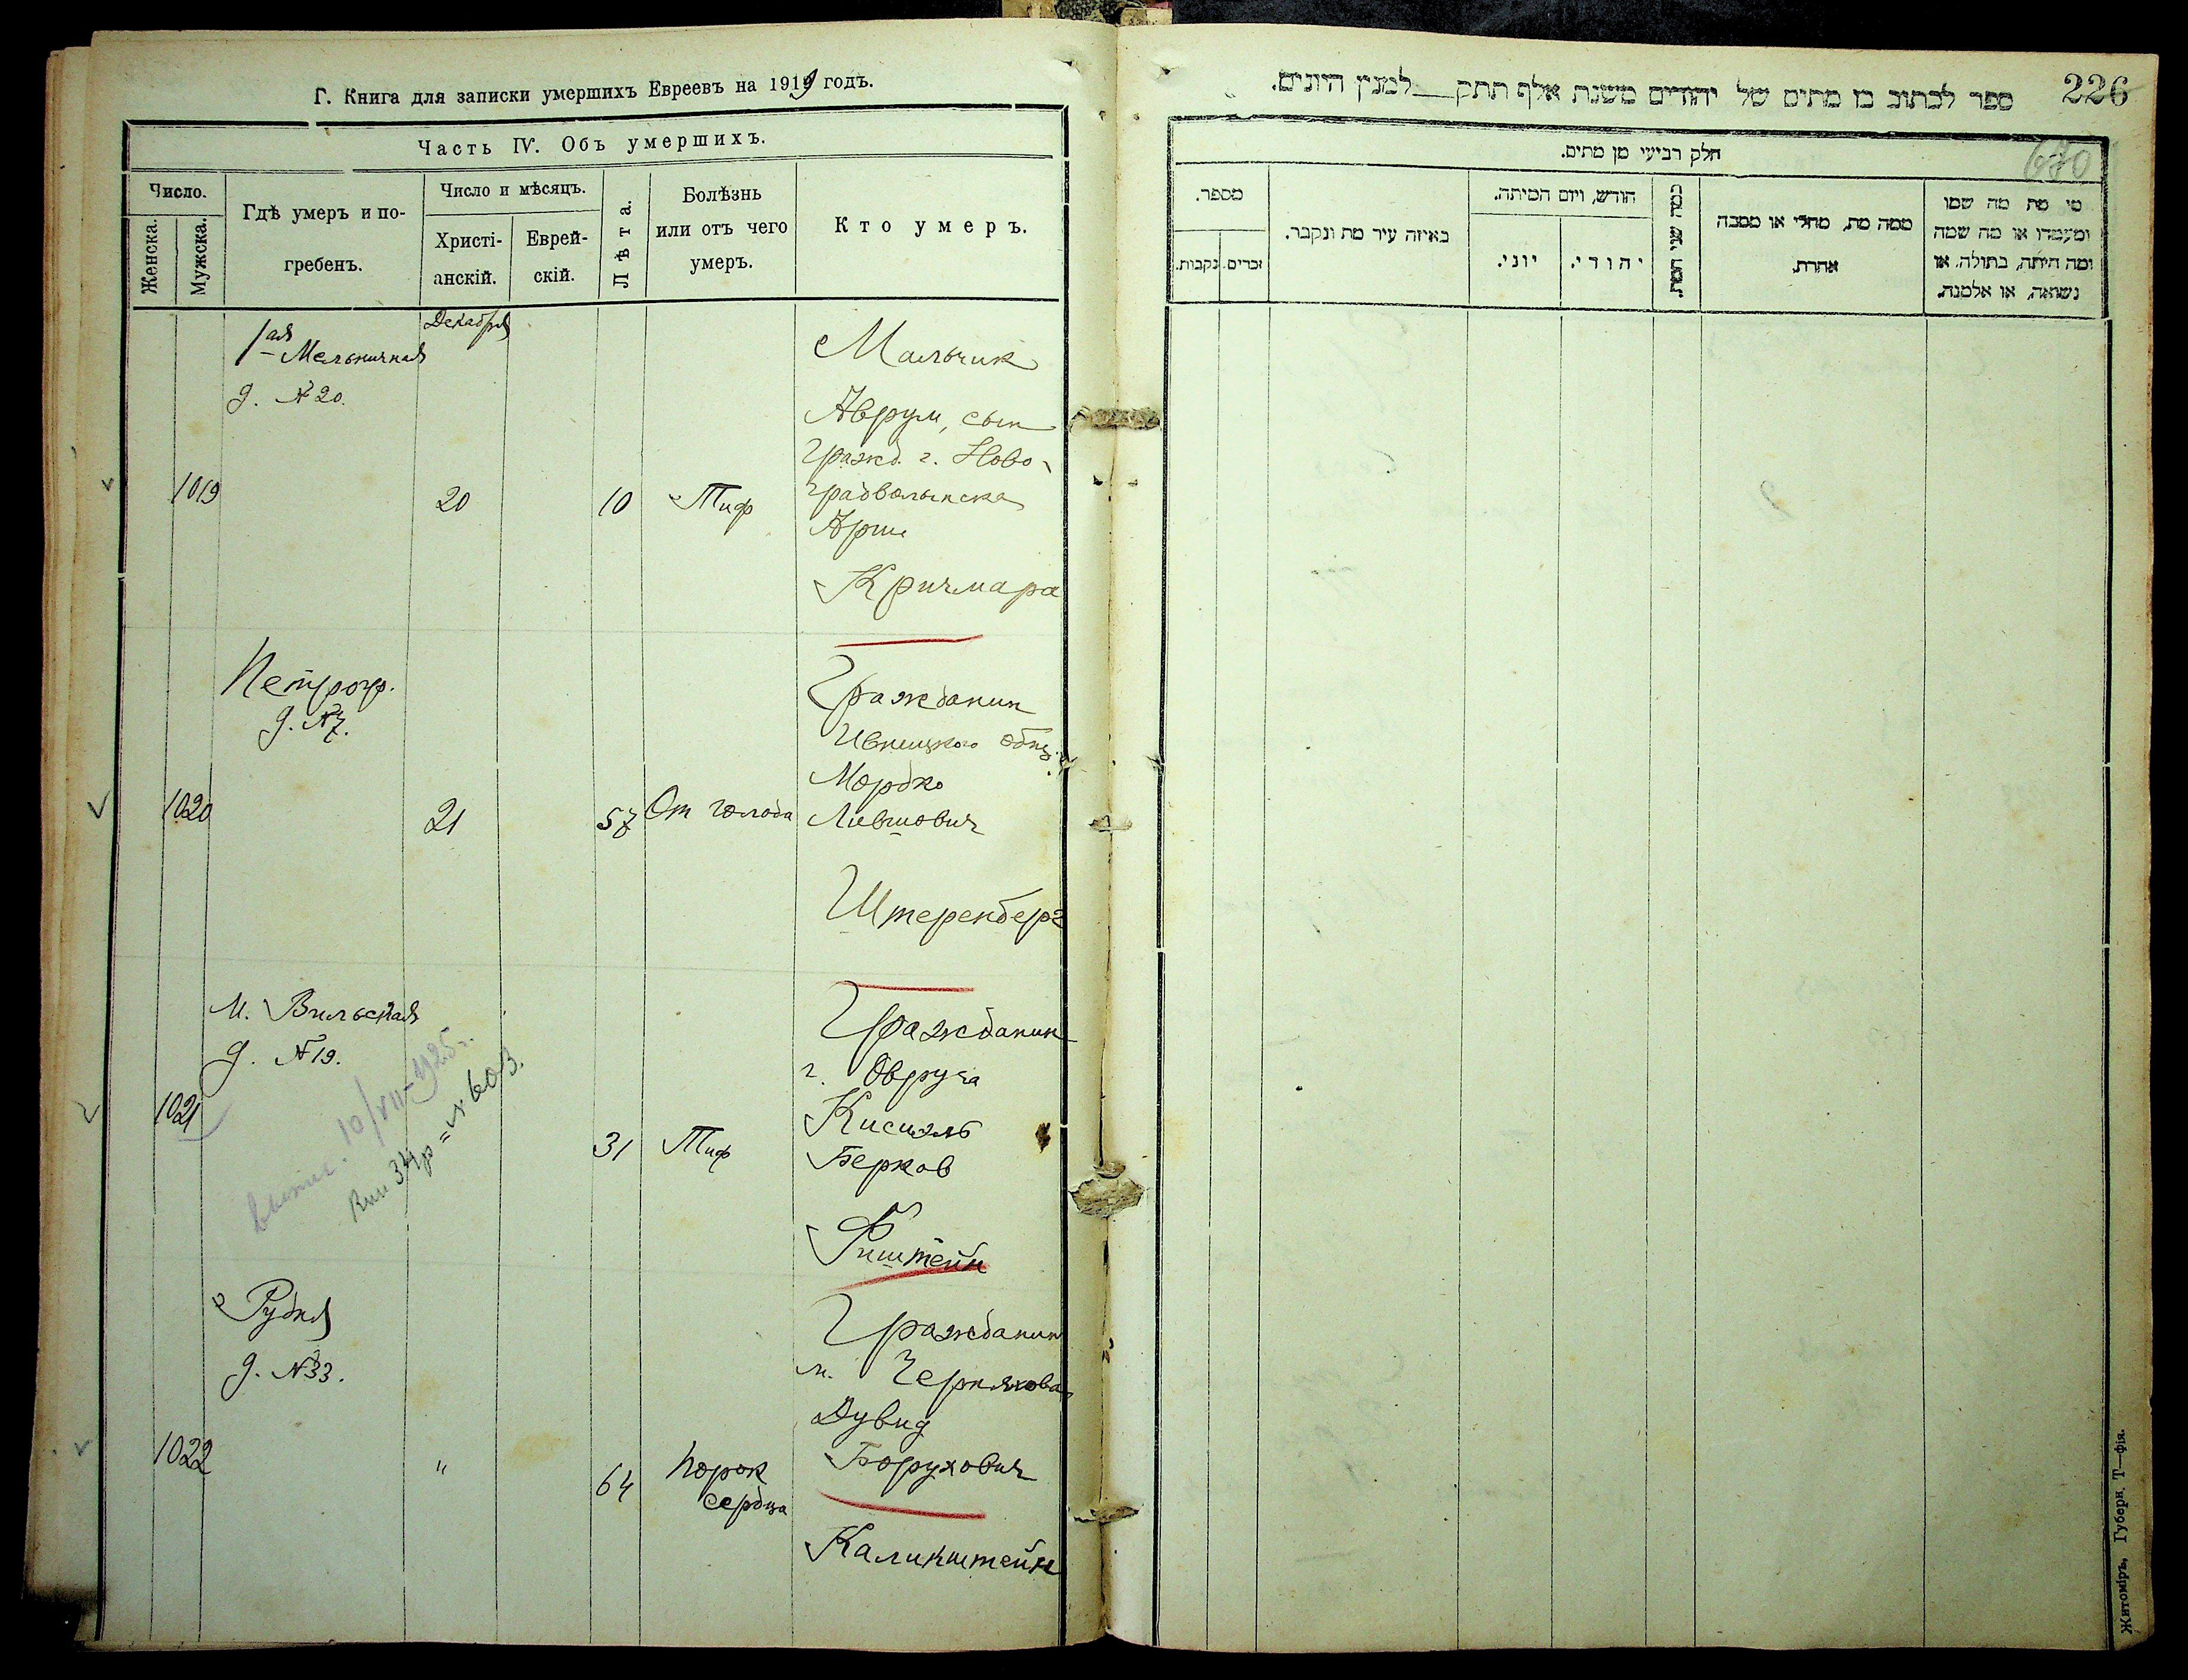 Г. Книга для записки умершихъ Евреевъ на 1919 годъ.
Часть IV. Объ умершихъ.
Число.
Женска.
Мужска.
Гдѣ умеръ и по-
гребенъ.
Число и мѣсяцъ.
Христі-
анскій.
Еврей-
скій.
Лѣта.
Болѣзнь
или отъ чего
умеръ.
Кто умеръ.
Декабря
1ая Мельничная
д. №20.
1019
20
10
Тиф
Мальчик
Аврум, сын
гражд. г. Ново-
градволынска
Арии
Кричмара
Петрогр.
д. №7.
1020
21
57
От голода
Гражданин
Ивницкого общ.
Мордко
Лившович
Штеренберг
М. Вильская
д. №19.
1021
10/VII-1925 г.
31
Тиф
Гражданин
г. Овруча
Кисиэль
Берков
Фиштейн
Рудня
д. №33.
1022
"
64
Порок
сердца
Гражданин
м. Черняхова
Дувид
Борухович
Калинштейн
226
ספר לכתוב בו מתים של יהודים משנת אלף תתק__למנין היונים.
680
חלק רביעי מן מתים.
מספר.
נקבות.
זכרים.
באיזה עיר מת ונקבר.
חודש, ויום המיתה.
יוני.
יהודי.
כמה שני המת.
ממה מת, מחלי או מסבה
אחרת.
מי מת מה שמו
ומעמדו או מה שמה
ומה היתה, בתולה, או
נשואה, או אלמנה.
Житоміръ, Губерн. Т—фія.